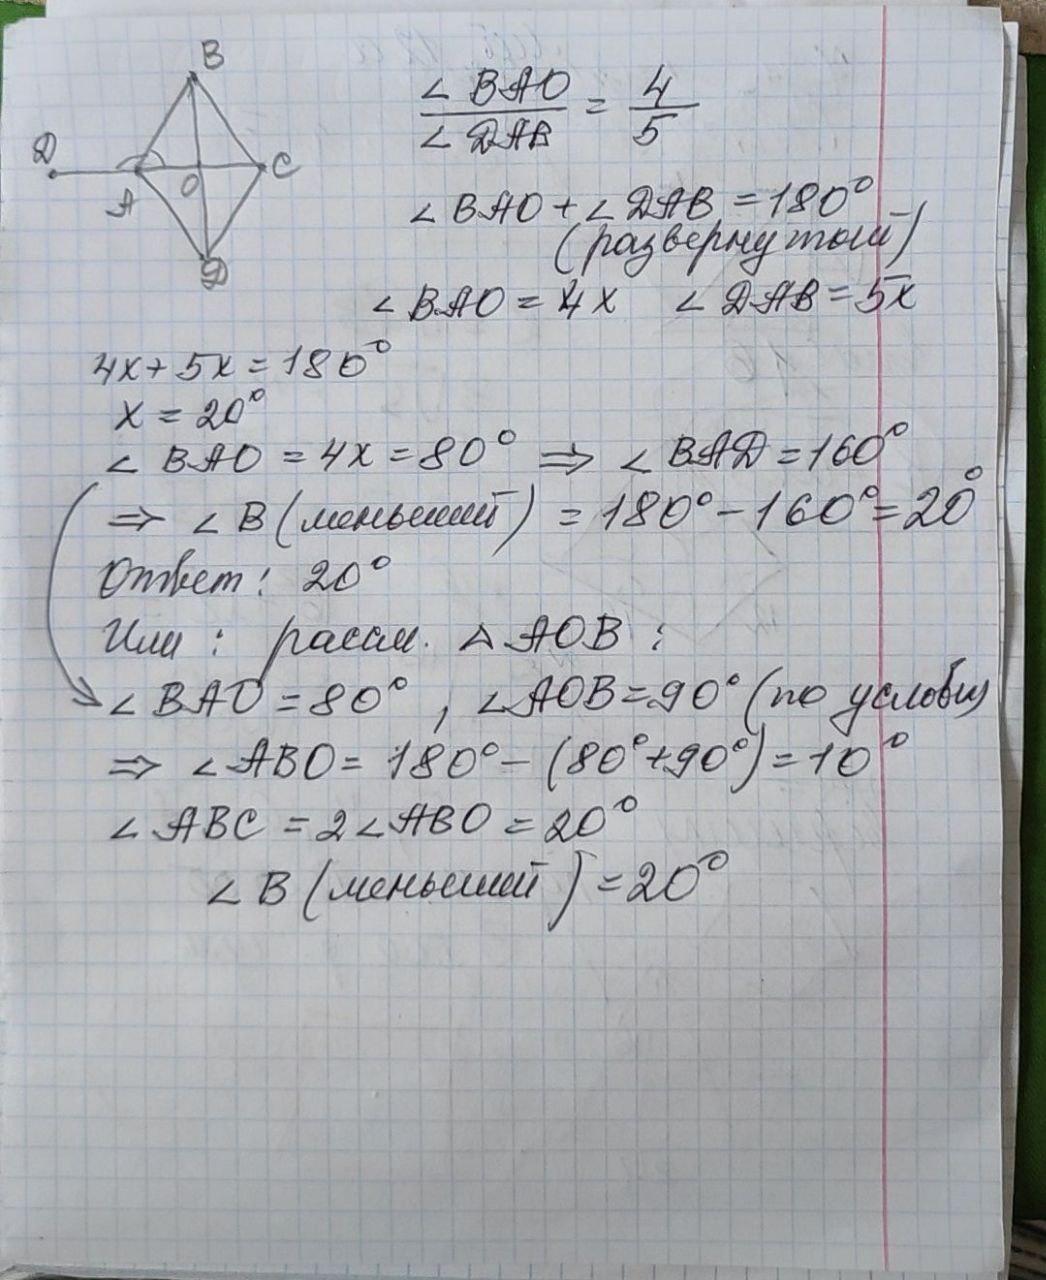 B
D
A
O
C
D
∠BAO / ∠DAB = 4/5
∠BAO + ∠DAB = 180°
(развернутый)
∠BAO = 4x ∠DAB = 5x
4x + 5x = 180°
x = 20°
∠BAO = 4x = 80° ⇒ ∠BAD = 160°
⇒ ∠B (меньший) = 180° - 160° = 20°
Ответ: 20°
Или: рассм. △AOB:
∠BAO = 80°, ∠AOB = 90° (по условию)
⇒ ∠ABO = 180° - (80° + 90°) = 10°
∠ABC = 2∠ABO = 20°
∠B (меньший) = 20°